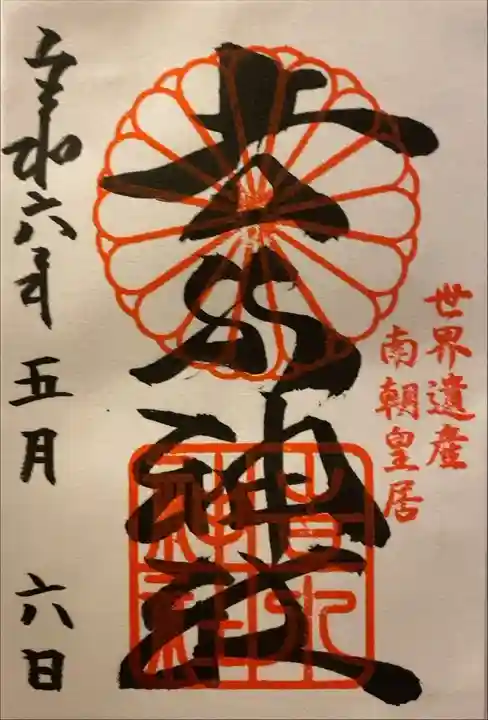 世界遺産
南朝皇居
吉水神社
吉水
神社
令和六年五月六日